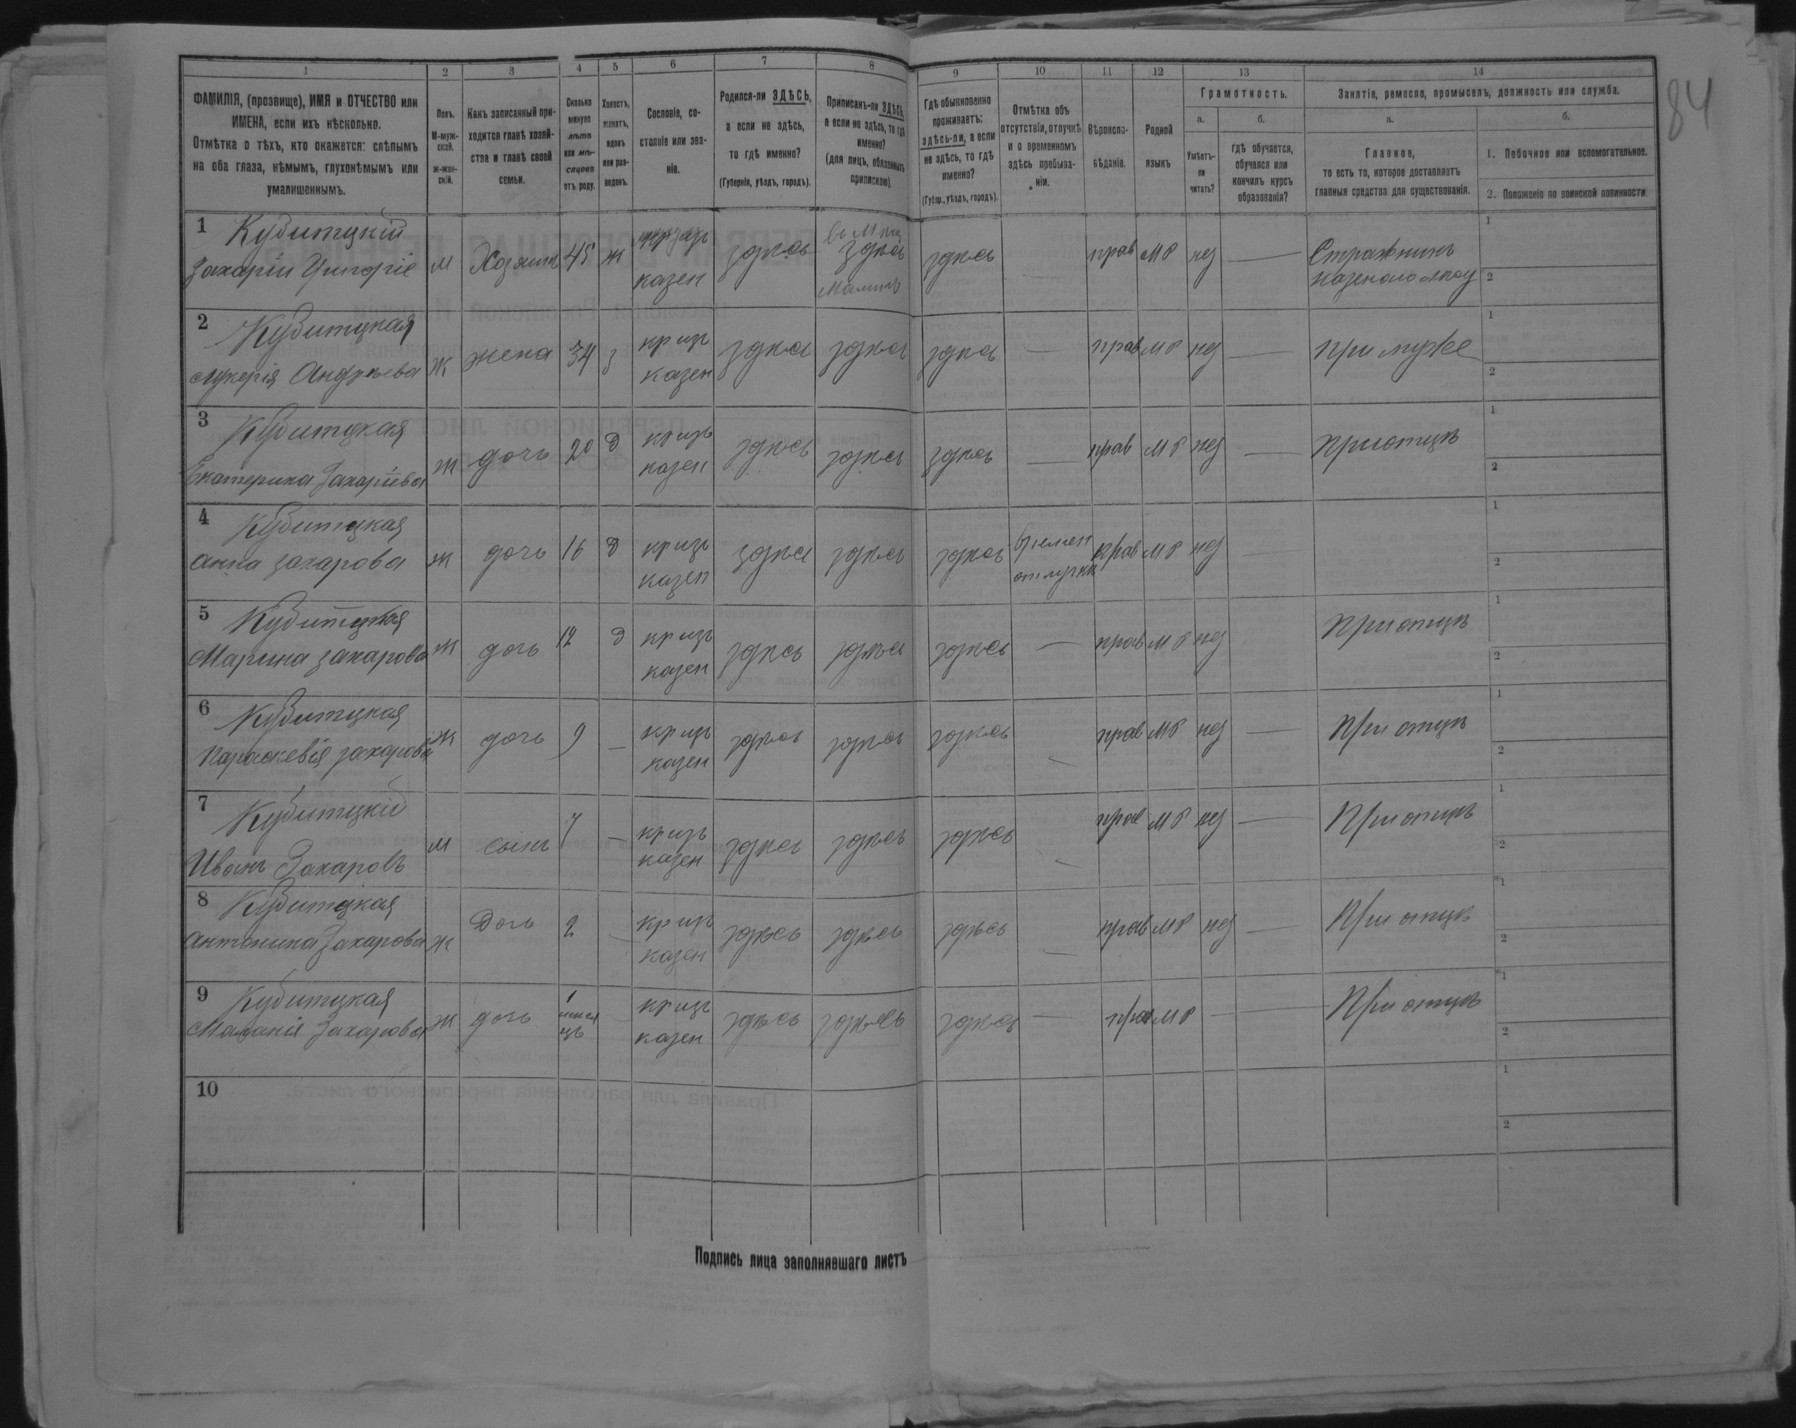 84
1 2 3 4 5 6 7 8 9 10 11 12 13 14
ФАМИЛІЯ, (прозвище), ИМЯ и ОТЧЕСТВО или
ИМЕНА, если ихъ нѣсколько.
Отмѣтка о тѣхъ, кто окажется: слѣпымъ
на оба глаза, нѣмымъ, глухонѣмымъ или
умалишеннымъ.
Полъ.
М-муж-
ской.
Ж-жен-
скій.
Какъ записанный при-
ходится главѣ хозяй-
ства и главѣ своей
семьи.
Сколько
минуло
лѣтъ
или мѣ-
сяцевъ
отъ роду.
Холостъ,
женатъ,
вдовъ
или раз-
веденъ.
Сословіе, со-
стояніе или зва-
ніе.
Родился-ли ЗДѢСЬ,
а если не здѣсь,
то гдѣ именно?
(Губернія, уѣздъ, городъ).
Приписанъ-ли ЗДѢСЬ,
а если не здѣсь, то гдѣ
именно?
(для лицъ, обязанныхъ
припиской).
Гдѣ обыкновенно
проживаетъ:
здѣсь-ли, а если
не здѣсь, то гдѣ
именно?
(Губер., уѣздъ, городъ).
Отмѣтка объ
отсутствіи, отлучкѣ
и о временномъ
здѣсь пребыва-
ніи.
Вѣроиспо-
вѣданіе.
Родной
языкъ
Грамотность.
а.
Умѣетъ-
ли
читать?
б.
гдѣ обучается,
обучался или
кончилъ курсъ
образованія?
Занятіе, ремесло, промыселъ, должность или служба.
а.
Главное,
то есть то, которое доставляетъ
главныя средства для существованія.
б.
1. Побочное или вспомогательное.
2. Положеніе по воинской повинности.
1 Кубитцкій
Захарій м Хозяинъ 45 ж казен здѣсь здѣсь здѣсь прав МР нѣ — Стражникъ
1
2
2 Кубитцкая
Андрѣева ж жена 34 з казен здѣсь здѣсь здѣсь — прав МР нѣ — При мужѣ
1
2
3 Кубитцкая
Екатерина Захарііва ж дочь 20 д казен здѣсь здѣсь здѣсь — прав МР нѣ — При отцѣ
1
2
4 Кубитцкая
Анна Захарова ж дочь 16 д казен здѣсь здѣсь здѣсь времен отлучка прав МР нѣ —
1
2
5 Кубитцкая
Марина Захарова ж дочь 12 д казен здѣсь здѣсь здѣсь — прав МР нѣ При отцѣ
1
2
6 Кубитцкая
Параскевія Захарова ж дочь 9 — казен здѣсь здѣсь здѣсь — прав МР нѣ — При отцѣ
1
2
7 Кубитцкій
Иванъ Захаровъ м сынъ 7 — казен здѣсь здѣсь здѣсь — прав МР нѣ — При отцѣ
1
2
8 Кубитцкая
Антонина Захарова ж Дочь 2 — казен здѣсь здѣсь здѣсь — прав МР нѣ — При отцѣ
1
2
9 Кубитцкая
Маланія Захарова ж дочь 1 — казен здѣсь здѣсь здѣсь — прав МР — — При отцѣ
1
2
10
1
2
Подпись лица заполнявшаго листъ